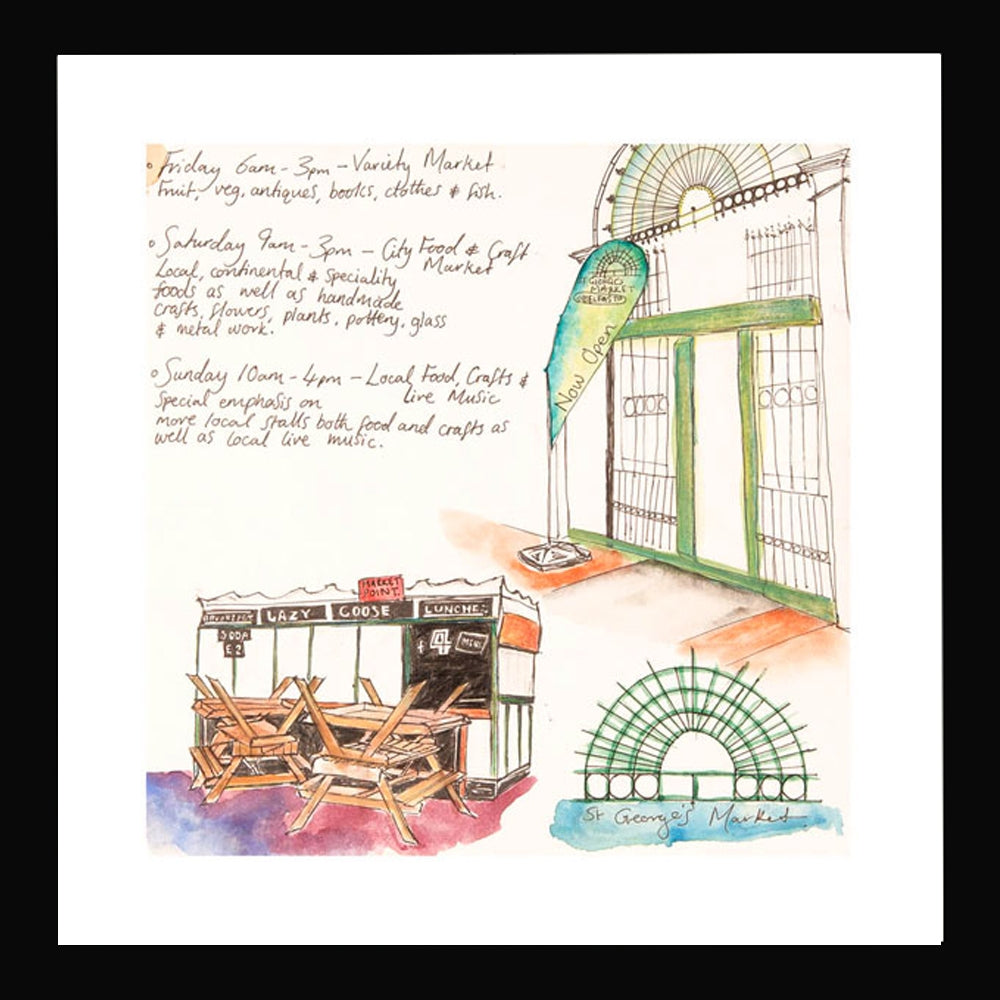 Friday 6am - 3pm - Variety Market
Fruit, veg, antiques, books, clothes & fish.
Saturday 9am - 3pm - City Food & Craft
Market
Local, continental & speciality
foods as well as handmade
crafts, flowers, plants, pottery, glass
& metal work.
Sunday 10am - 4pm - Local Food, Crafts &
live Music
special emphasis on
more local stalls both food and crafts as
well as local live music.
MARKET
BELFAST
Now Open
MARKET
POINT
LAZY GOOSE LUNCHE
SODA
£2
£4
MENU
St George's Market